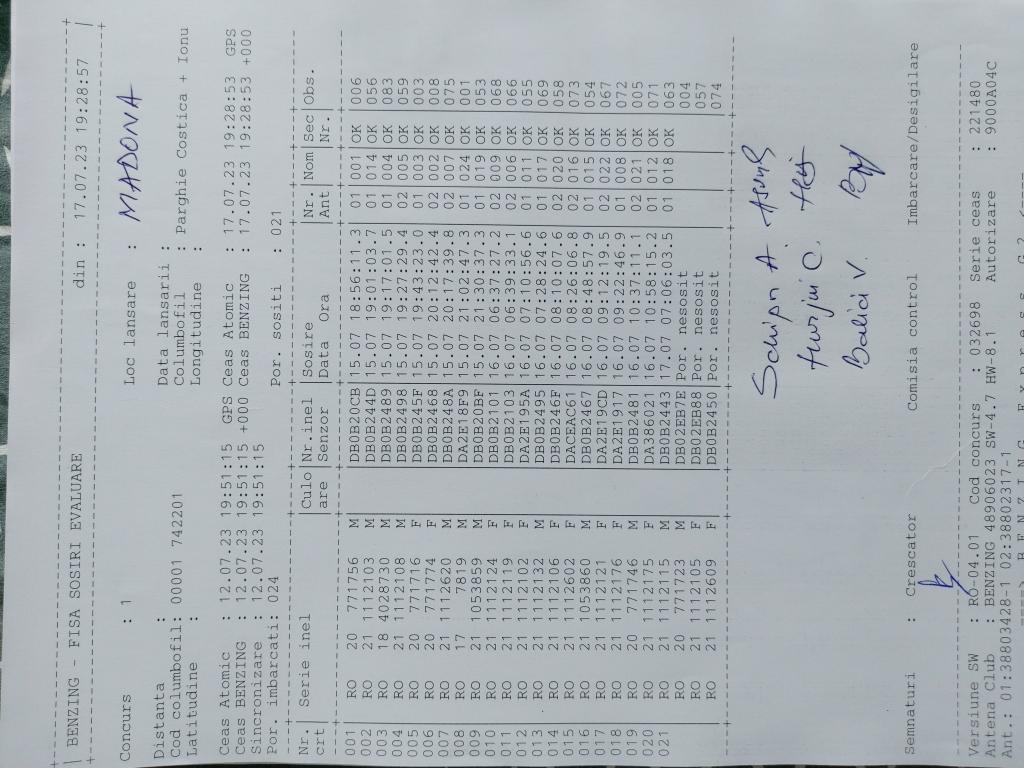 | BENZING - FISA SOSIRI EVALUARE din : 17.07.23 19:28:57 |
Concurs : 1 Loc lansare : MADONA
Distanta : Data lansarii :
Cod columbofil: 00001 742201 Columbofil : Parghie Costica + Ionu
Latitudine : Longitudine :
Ceas Atomic : 12.07.23 19:51:15 GPS Ceas Atomic : 17.07.23 19:28:53 GPS
Ceas BENZING : 12.07.23 19:51:15 +000 Ceas BENZING : 17.07.23 19:28:53 +000
Sincronizare : 12.07.23 19:51:15
Por. imbarcati: 024 Por. sositi : 021
Nr.| Serie inel |Culo|Nr.inel |Sosire |Nr.|Nom|Sec|Obs.
crt| |are |Senzor |Data Ora |Ant| |Nr.|
001 RO 20 771756 M DB0B20CB 15.07 18:56:11.3 01 001 OK 006
002 RO 21 1112103 M DB0B244D 15.07 19:01:03.7 01 014 OK 056
003 RO 18 4028730 M DB0B2489 15.07 19:17:01.5 01 004 OK 083
004 RO 21 1112108 M DB0B2498 15.07 19:27:29.4 02 005 OK 059
005 RO 20 771716 F DB0B245F 15.07 19:43:23.0 01 003 OK 003
006 RO 20 771774 F DB0B2468 15.07 20:12:42.4 02 002 OK 008
007 RO 21 1112620 M DB0B248A 15.07 20:17:39.8 02 007 OK 075
008 RO 17 7819 M DA2E18F9 15.07 21:02:47.3 01 024 OK 001
009 RO 21 1053859 M DB0B20BF 15.07 21:30:37.3 01 019 OK 053
010 RO 21 1112124 F DB0B2101 16.07 06:37:27.2 02 009 OK 068
011 RO 21 1112119 F DB0B2103 16.07 06:39:33.1 02 006 OK 066
012 RO 21 1112102 F DA2E195A 16.07 07:10:56.6 01 011 OK 055
013 RO 21 1112132 M DB0B2495 16.07 07:28:24.6 01 017 OK 069
014 RO 21 1112106 F DB0B246F 16.07 08:10:07.6 02 020 OK 058
015 RO 21 1112602 F DACEAC61 16.07 08:26:06.8 02 016 OK 073
016 RO 21 1053860 M DB0B2467 16.07 08:48:57.9 01 015 OK 054
017 RO 21 1112121 F DA2E19CD 16.07 09:12:19.5 02 022 OK 067
018 RO 21 1112176 F DA2E1917 16.07 09:22:46.9 01 008 OK 072
019 RO 20 771746 M DB0B2481 16.07 10:37:11.1 02 021 OK 005
020 RO 21 1112175 F DA386021 16.07 10:58:15.2 01 012 OK 071
021 RO 21 1112115 M DB0B2443 17.07 07:06:03.5 01 018 OK 063
RO 20 771723 M DB02EB7E Por. nesosit 004
RO 21 1112105 F DB02EB88 Por. nesosit 057
RO 21 1112609 F DB0B2450 Por. nesosit 074
A
C.
V.
Semnaturi : Crescator Comisia control Imbarcare/Desigilare
Versiune SW : RO-04.01 Cod concurs : 032698 Serie ceas : 221480
Antena Club : BENZING 48906023 SW-4.7 HW-8.1 Autorizare : 9000A04C
Ant.: 01:38803428-1 02:38802317-1